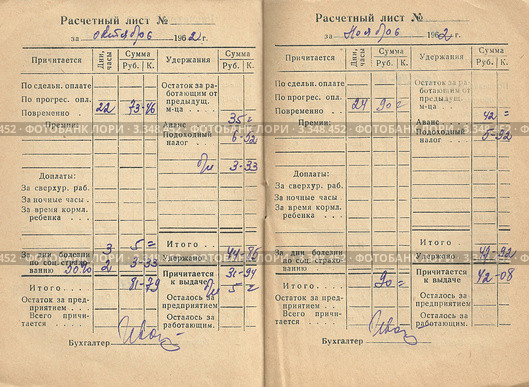 Расчетный лист №
за октябрь 1962 г.
Причитается
Дни, часы
Сумма
Руб. К.
Удержания
Сумма
Руб. К.
По сдельн. оплате
По прогрес. опл.
Повременно . . 22 73-46
Премии:
Доплаты:
За сверхур. раб.
За ночные часы .
За время кормл. ребенка . . .
3 5 =
За дни болезни по соц. страхованию 90% 2 3-33
Итого . . . 81-79
Остаток за предприятием . .
Всего причитается . . . .
Остаток за работающим от предыдущ. м-ца . . .
Аванс . . . 35 =
Подоходный налог . . . 6-52
б/л 3-33
Итого . . .
Удержано . . 44-85
Причитается к выдаче 36-94
б/л 5 =
Осталось за предприятием
Осталось за работающим.
Бухгалтер
Расчетный лист №
за Ноябрь 1962 г.
Причитается
Дни, часы
Сумма
Руб. К.
Удержания
Сумма
Руб. К.
По сдельн. оплате
По прогрес. опл.
Повременно . . 24 90 =
Премии:
Доплаты:
За сверхур. раб.
За ночные часы .
За время кормл. ребенка . . .
За дни болезни по соц. страхованию
Итого . . . 90 =
Остаток за предприятием . .
Всего причитается . . . .
Остаток за работающим от предыдущ. м-ца . . .
42 =
Аванс . . .
Подоходный налог . . . 5-92
Итого . . .
Удержано . . 47-92
Причитается к выдаче 42-08
Осталось за предприятием
Осталось за работающим.
Бухгалтер
3.348.452 - ФОТОБАНК ЛОРИ - 3.348.452 - ФОТОБАНК ЛОРИ